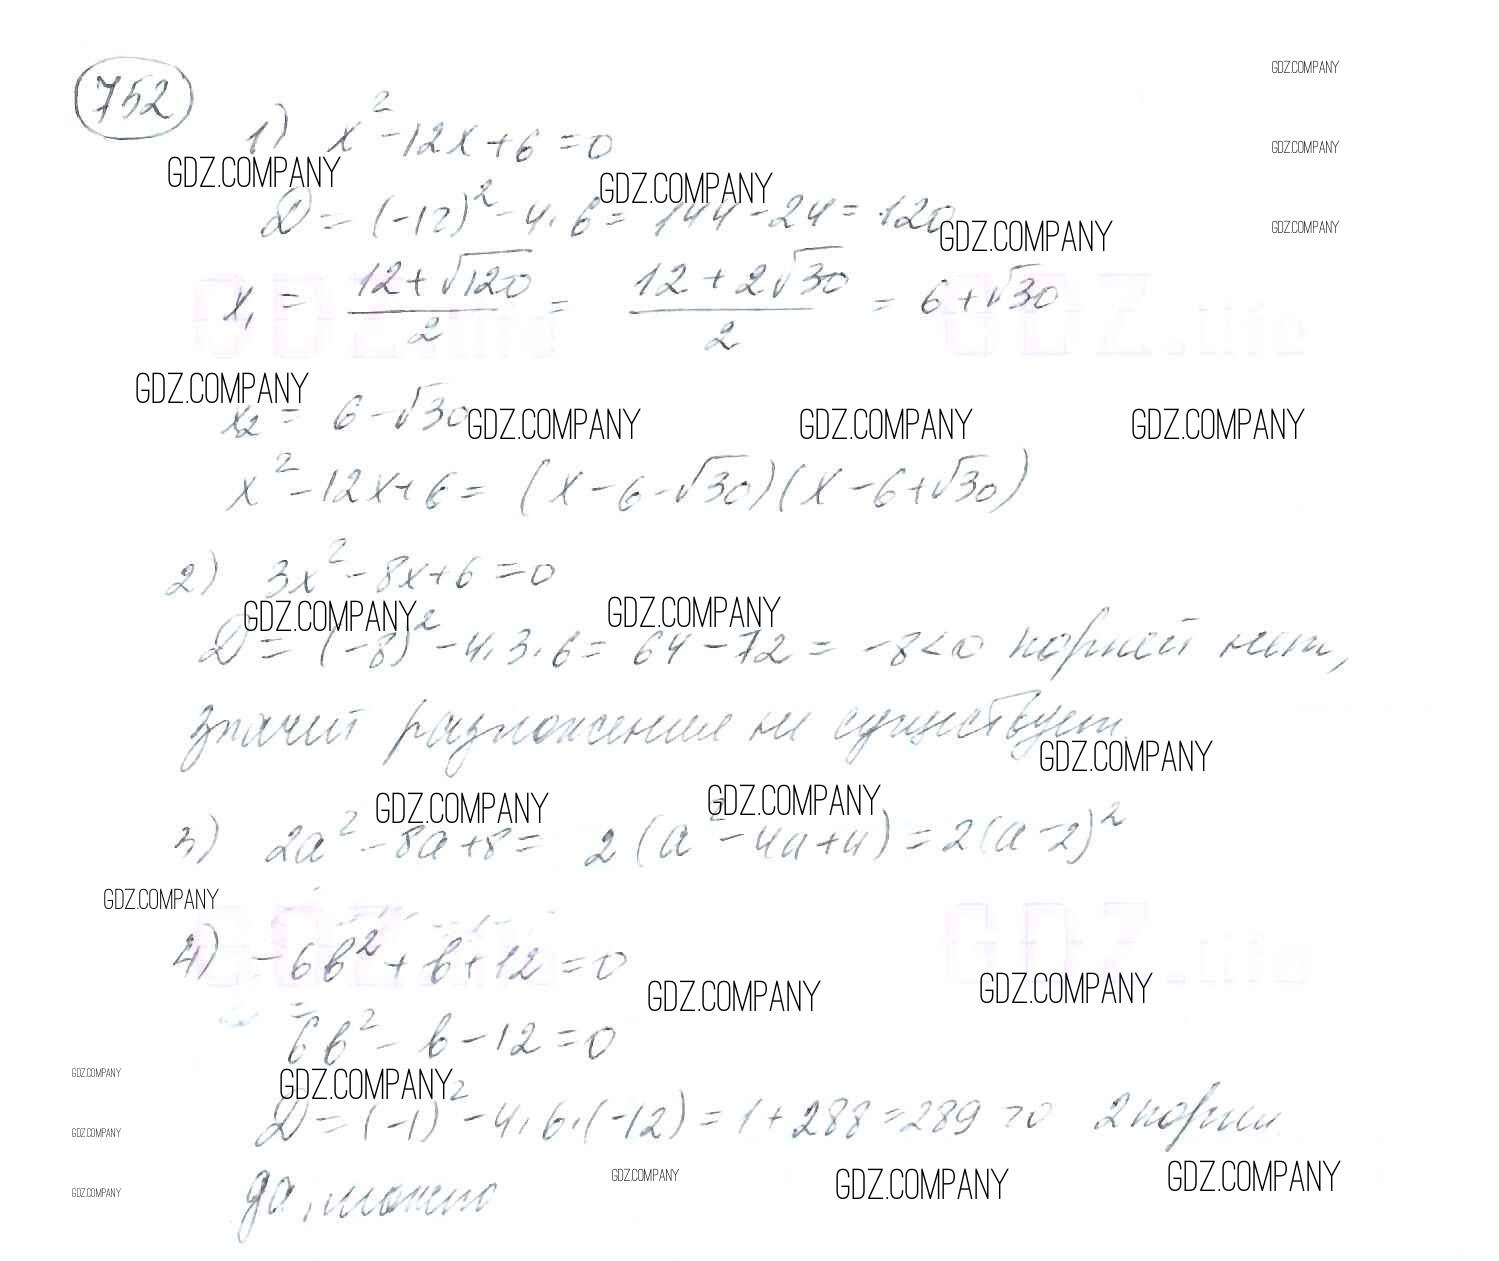 752
GDZ.COMPANY
1) x² - 12x + 6 = 0
GDZ.COMPANY
GDZ.COMPANY
GDZ.COMPANY
D = (-12)² - 4 · 6 = 144 - 24 = 120
GDZ.COMPANY
GDZ.COMPANY
x₁ = (12 + √120)/2 = (12 + 2√30)/2 = 6 + √30
GDZ.life GDZ.life
GDZ.COMPANY
x₂ = 6 - √30
GDZ.COMPANY GDZ.COMPANY GDZ.COMPANY
x² - 12x + 6 = (x - 6 - √30)(x - 6 + √30)
2) 3x² - 8x + 6 = 0
GDZ.COMPANY GDZ.COMPANY
D = (-8)² - 4 · 3 · 6 = 64 - 72 = -8 < 0 корней нет,
значит разложения не существует
GDZ.COMPANY
GDZ.COMPANY GDZ.COMPANY
3) 2a² - 8a + 8 = 2(a² - 4a + 4) = 2(a - 2)²
GDZ.COMPANY
GDZ.life GDZ.life
4) -6b² + b + 12 = 0
GDZ.COMPANY GDZ.COMPANY
6b² - b - 12 = 0
GDZ.COMPANY
GDZ.COMPANY
D = (-1)² - 4 · 6 · (-12) = 1 + 288 = 289 > 0 2 корня
GDZ.COMPANY
GDZ.COMPANY GDZ.COMPANY GDZ.COMPANY
GDZ.COMPANY
да, можно